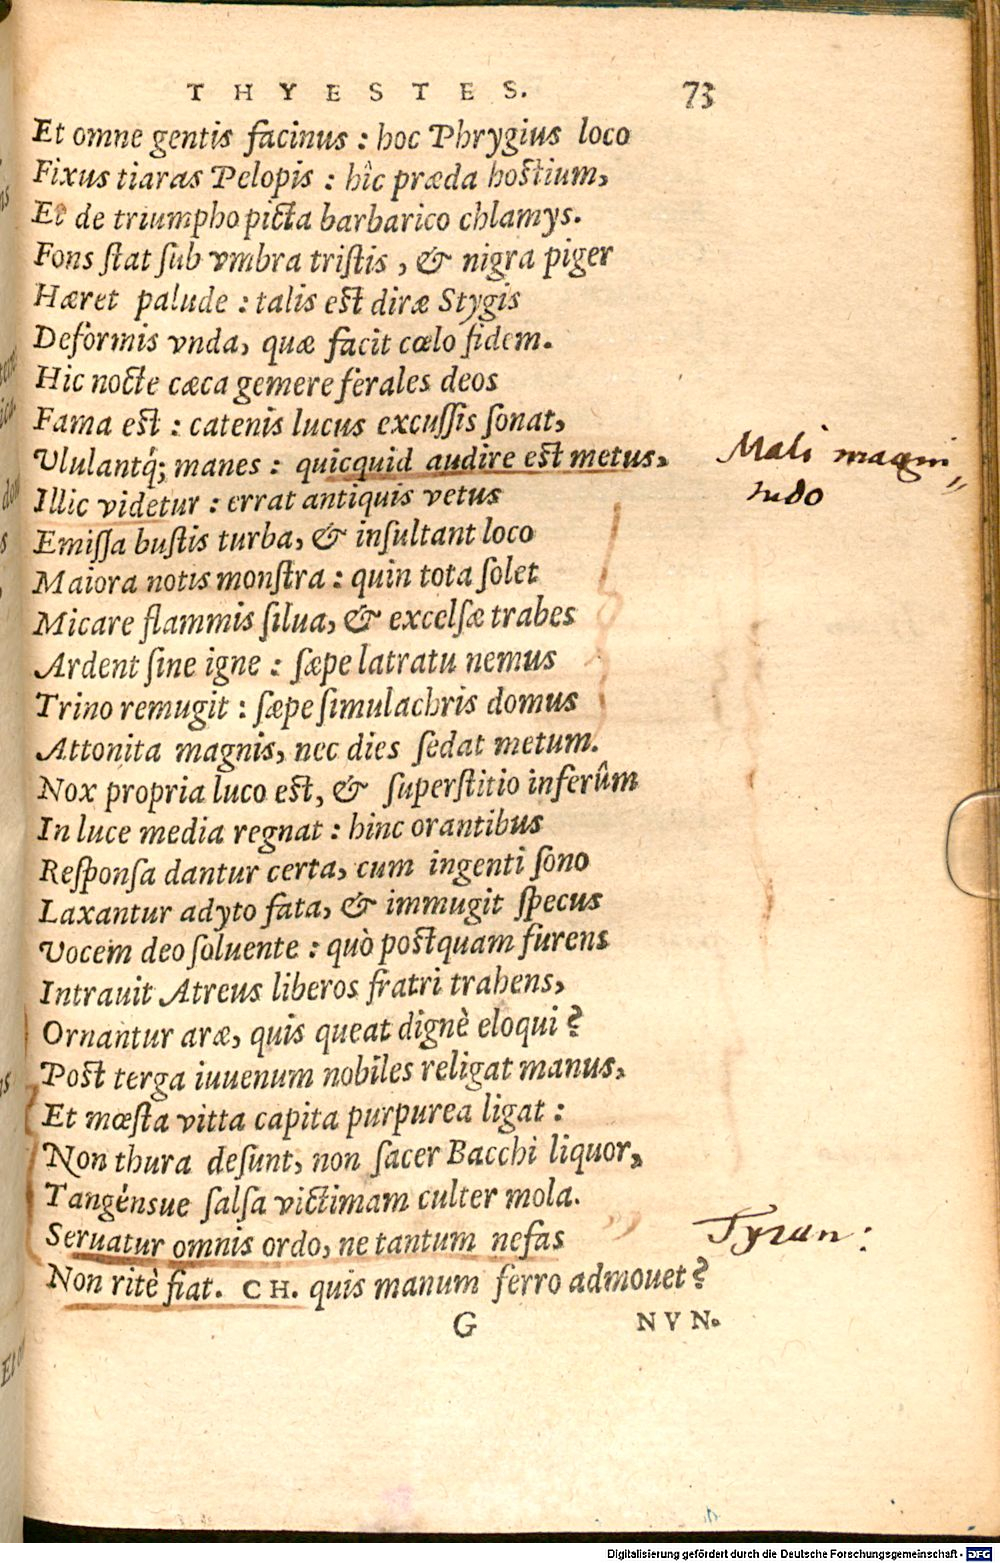 THYESTES. 73
Et omne gentis facinus : hoc Phrygius loco
Fixus tiaras Pelopis : hîc præda hostium,
Et de triumpho picta barbarico chlamys.
Fons ſtat ſub vmbra triſtis, & nigra piger
Hæret palude : talis est diræ Stygis
Deformis vnda, quæ facit cœlo fidem.
Hic nocte cæca gemere ferales deos
Fama est : catenis lucus excuſſis ſonat,
Vlulantq́; manes : quicquid audire est metus,
Mali magni„
Illic videtur : errat antiquis vetus
tudo
Emiſſa buſtis turba, & inſultant loco
Maiora notis monſtra : quin tota ſolet
Micare flammis ſilua, & excelſæ trabes
Ardent ſine igne : ſæpe latratu nemus
Trino remugit : ſæpe ſimulachris domus
Attonita magnis, nec dies ſedat metum.
Nox propria luco est, & ſuperſtitio inferûm
In luce media regnat : hinc orantibus
Reſponſa dantur certa, cum ingenti ſono
Laxantur adyto fata, & immugit ſpecus
Vocem deo ſoluente : quò postquam furens
Intrauit Atreus liberos fratri trahens,
Ornantur aræ, quis queat dignè eloqui?
Post terga iuuenum nobiles religat manus,
Et mœſta vitta capita purpurea ligat :
Non thura deſunt, non ſacer Bacchi liquor,
Tangénsue ſalſa victimam culter mola.
Seruatur omnis ordo, ne tantum nefas
Tyran:
Non ritè fiat. CH. quis manum ferro admouet?
G NVN.
Digitalisierung gefördert durch die Deutsche Forschungsgemeinschaft - DFG